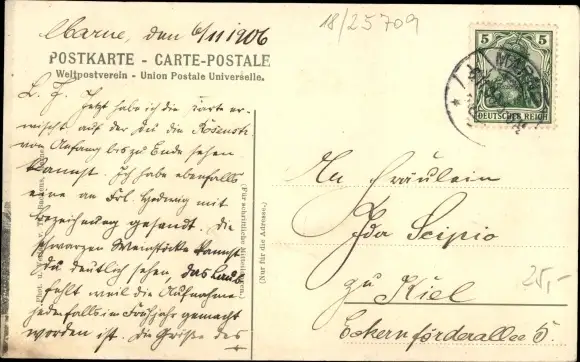 Marne, den 6/11 1906
18/25709
POSTKARTE - CARTE-POSTALE
Weltpostverein - Union Postale Universelle.
5
DEUTSCHES REICH
MARNE
L. F. Jetzt habe ich die Karte er-
wischt auf der Du die Rosenstr.
von Anfang bis zu Ende sehen
kannst. Ich habe ebenfalls
eine an Frl. Hedwig mit
Bezeichnung gesandt. Die
schwarzen Weinstöcke kannst
du deutlich sehen, das Laub
fehlt weil die Aufnahme
jedenfalls im Frühjahr gemacht
worden ist. Die Grüße des
(Für schriftliche Mitteilungen.)
(Nur für die Adresse.)
An Fräulein
Ida Scipio
zu Kiel
Eckernförderallee 5.
25,-